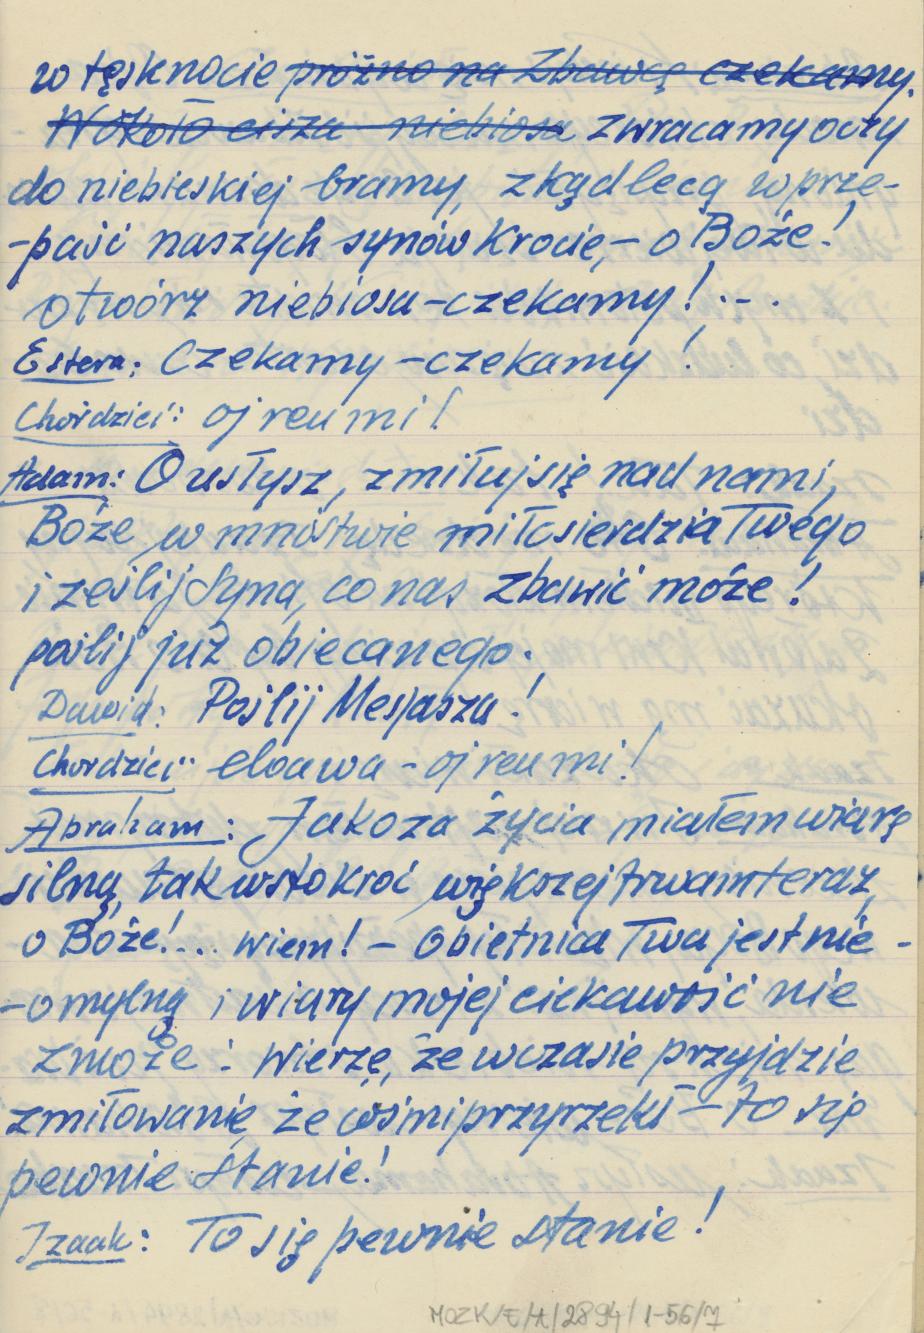 w tęsknocie ~~próżno na Zbawcę czekamy.~~
~~Wokoło cisza niebiosa~~ zwracamy oczy
do niebieskiej bramy, zkąd lecą w prze-
-paść naszych synów krocie, - o Boże!
otwórz niebiosa - czekamy! . - .
Estera: Czekamy - czekamy!
Chórdzieci: oj reu mi!
Adam: O usłysz, zmiłuj się nad nami,
Boże w mnóstwie miłosierdzia Twego
i ześlij Syna, co nas zbawić może!
poślij już obiecanego.
Dawid: Poślij Mesjasza!
Chórdzieci: eloawa - oj reu mi!
Abraham: Jako za życia miałem wiarę
silną, tak w stokroć większej trwam teraz,
o Boże!.... wiem! - Obietnica Twa jest nie -
- omylną i wiary mojej ciekawość nie
zmoże: Wierzę, że w czasie przyjdzie
zmiłowanie, że coś mi przyrzekł - to się
pewnie stanie!
Izaak: To się pewnie stanie!
MOZK/E/A/2894/1-56/7